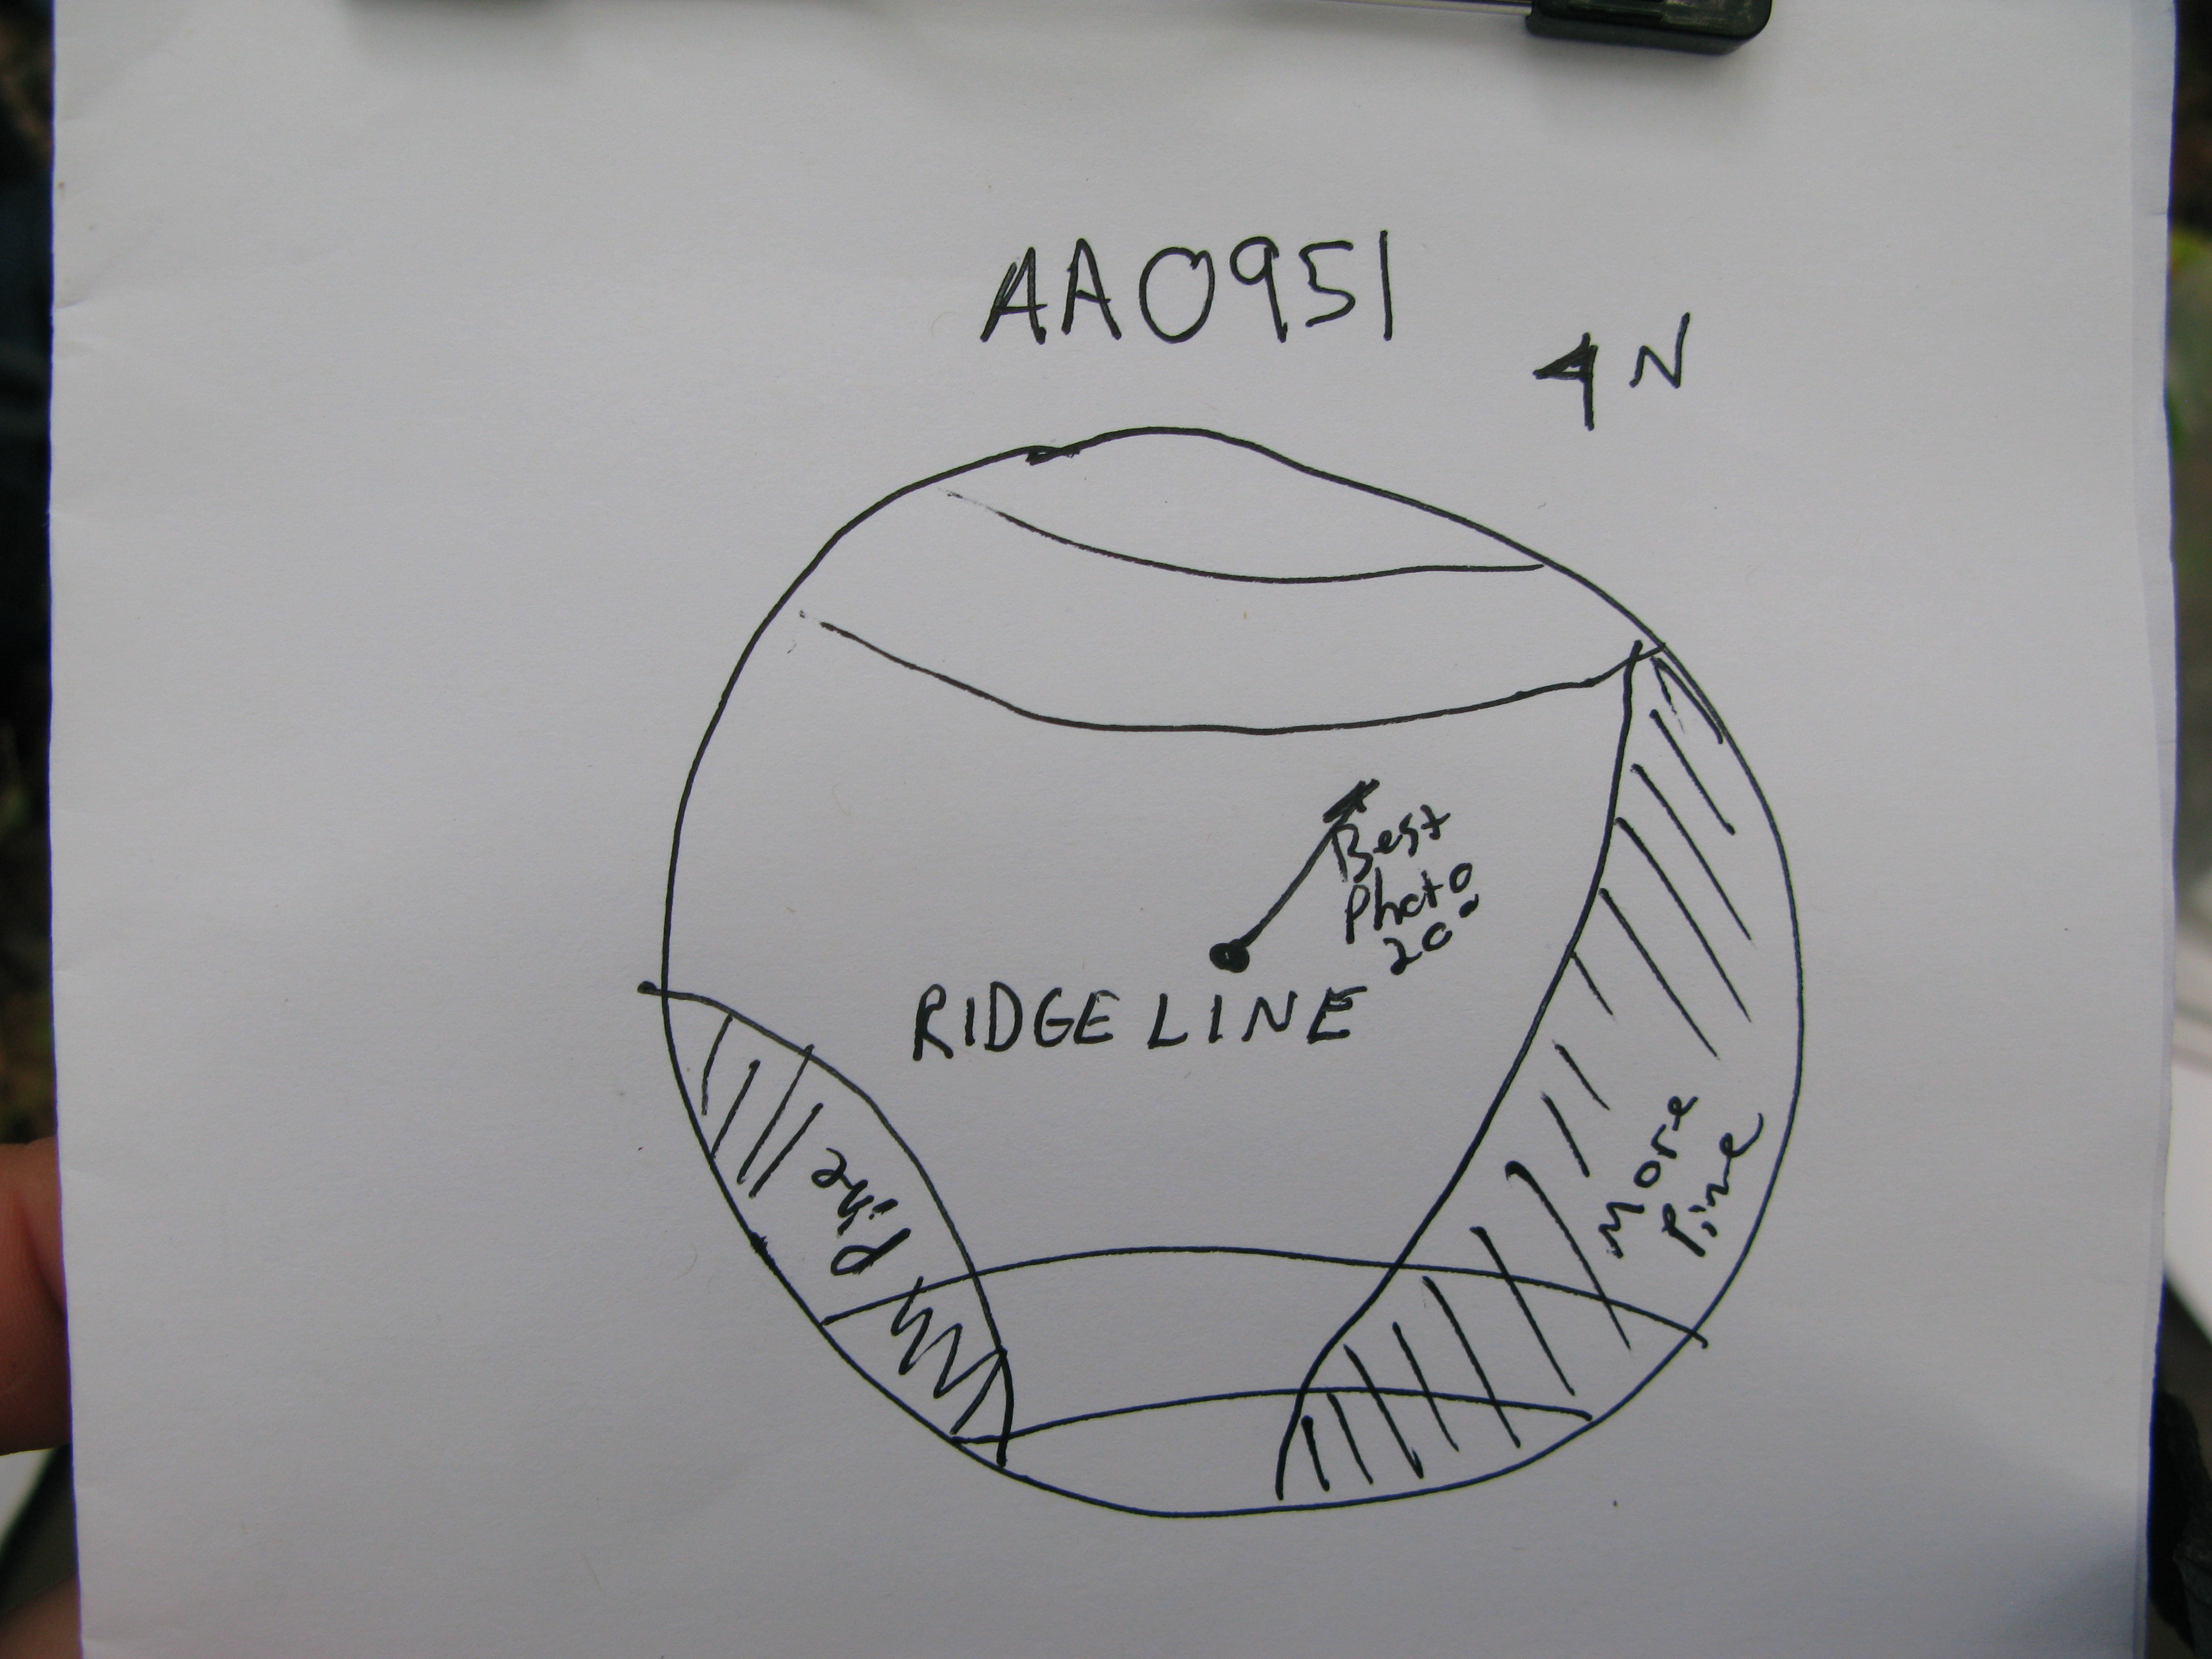 AA0951
N
Best
Photo
20°
RIDGE LINE
Pine
More
Pine